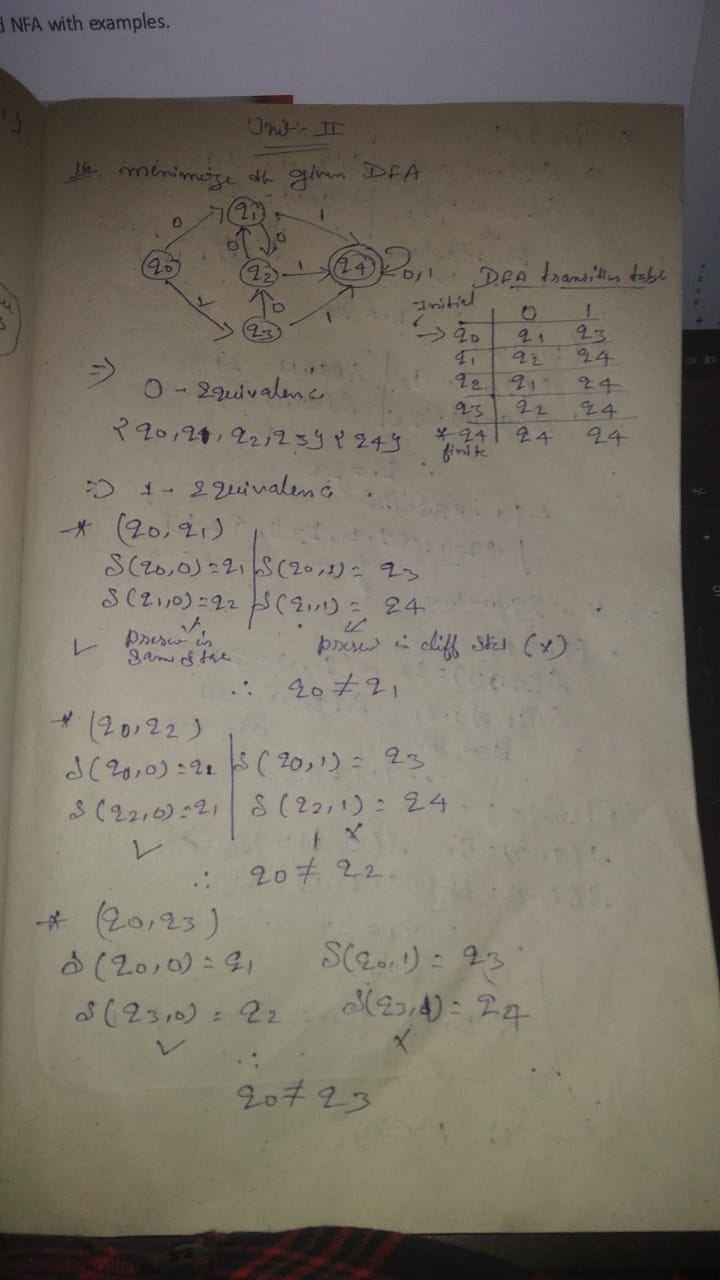 d NFA with examples.
Unit:- II
16. minimize the given DFA
0
q1
1
0
0
q0
q2
1
q4
0,1
1
0
q3
1
DFA transition table
Initial
0 1
→ q0 q1 q3
q1 q2 q4
q2 q1 q4
q3 q2 q4
* q4 q4 q4
finite
⇒ 0 - Equivalence
{q0, q1, q2, q3} {q4}
⇒ 1 - Equivalence
* (q0, q1)
δ(q0,0) = q1 | δ(q0,1) = q3
δ(q1,0) = q2 | δ(q1,1) = q4
✓ present in same state
present in diff state (x)
∴ q0 ≠ q1
* (q0, q2)
δ(q0,0) = q1 | δ(q0,1) = q3
δ(q2,0) = q1 | δ(q2,1) = q4
✓ x
∴ q0 ≠ q2
* (q0, q3)
δ(q0,0) = q1 δ(q0,1) = q3
δ(q3,0) = q2 δ(q3,1) = q4
✓ x
∴
q0 ≠ q3